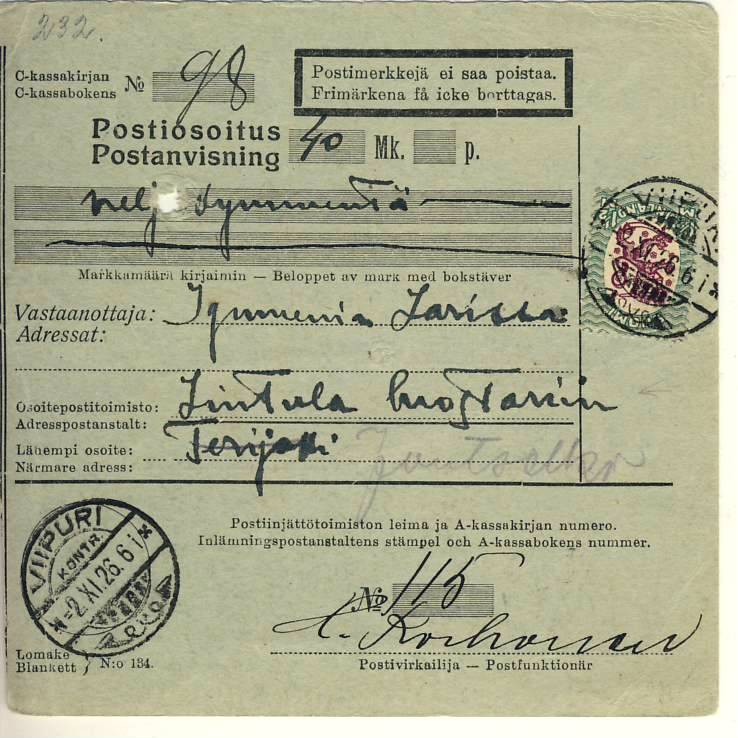 232.
C-kassakirjan
C-kassabokens № 98
Postimerkkejä ei saa poistaa.
Frimärkena få icke borttagas.
Postiosoitus
Postanvisning 40 Mk. p.
nelj kymmentä
Markkamäärä kirjaimin — Beloppet av mark med bokstäver
Vastaanottaja: Igumenia Larissa
Adressat:
Osoitepostitoimisto: Lintula luostariin
Adresspostanstalt:
Lähempi osoite: Terijoki
Närmare adress:
VIIPURI
2.XI.26.6 i
Postiinjättötoimiston leima ja A-kassakirjan numero.
Inlämningspostanstaltens stämpel och A-kassabokens nummer.
VIIPURI
KONTR.
-2.XI.26.6 i
№ 115
Korhonen
Postivirkailija — Postfunktionär
Lomake
Blankett } N:o 134.